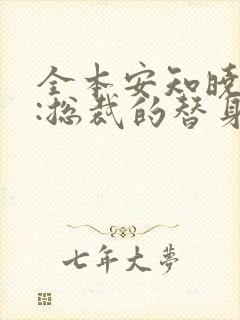 全本安知晓
:总裁的替身
七年大梦